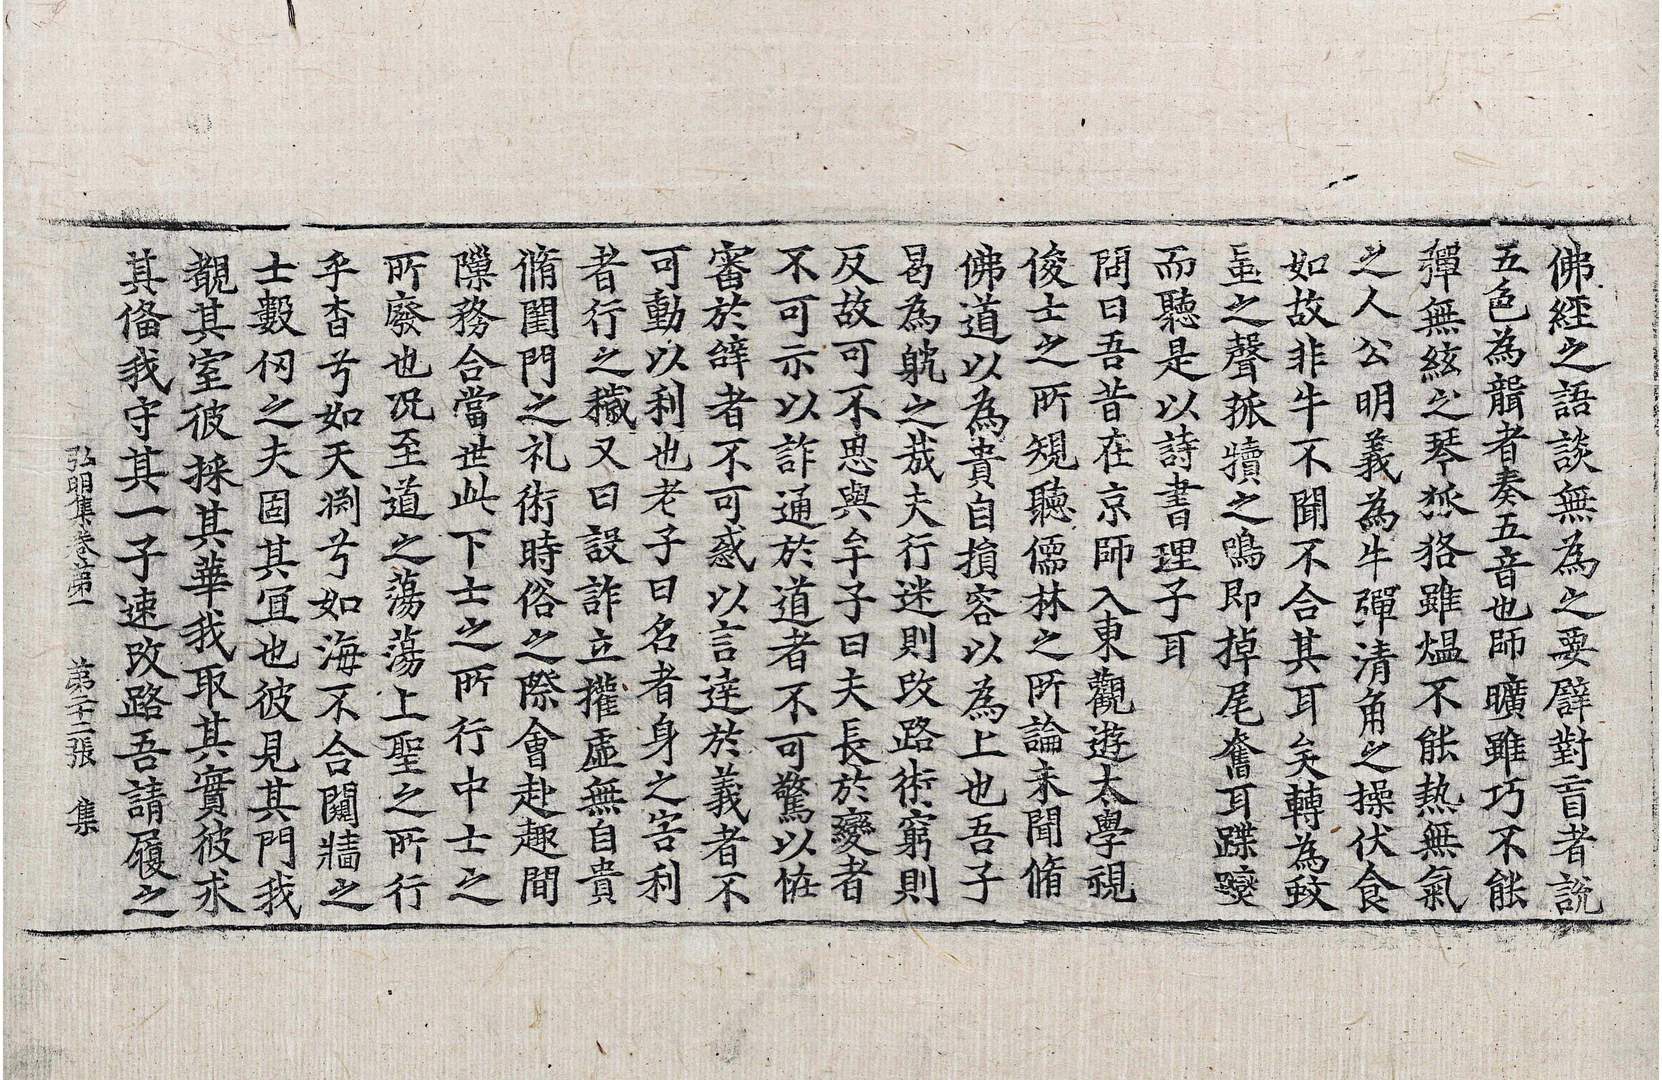 佛經之語談無為之要譬對盲者說
五色為聾者奏五音也師曠雖巧不能
彈無絃之琴狐狢雖熅不能熱無氣
之人公明義為牛彈清角之操伏食
如故非牛不聞不合其耳矣轉為蚊
虻之聲孤犢之鳴即掉尾奮耳蹀躞
而聽是以詩書理子耳
問曰吾昔在京師入東觀遊太學視
俊士之所規聽儒林之所論未聞脩
佛道以為貴自損容以為上也吾子
曷為躭之哉夫行迷則改路術窮則
反故可不思與牟子曰夫長於變者
不可示以詐通於道者不可驚以恠
審於辭者不可惑以言達於義者不
可動以利也老子曰名者身之害利
者行之穢又曰設詐立權虛無自貴
脩閨門之礼術時俗之際會赴趣間
隟務合當世此下士之所行中士之
所廢也况至道之蕩蕩上聖之所行
乎杳兮如天淵兮如海不合闚牆之
士數仞之夫固其宜也彼見其門我
覩其室彼採其華我取其實彼求
其俻我守其一子速改路吾請履之
弘明集卷第一 第二十二張 集